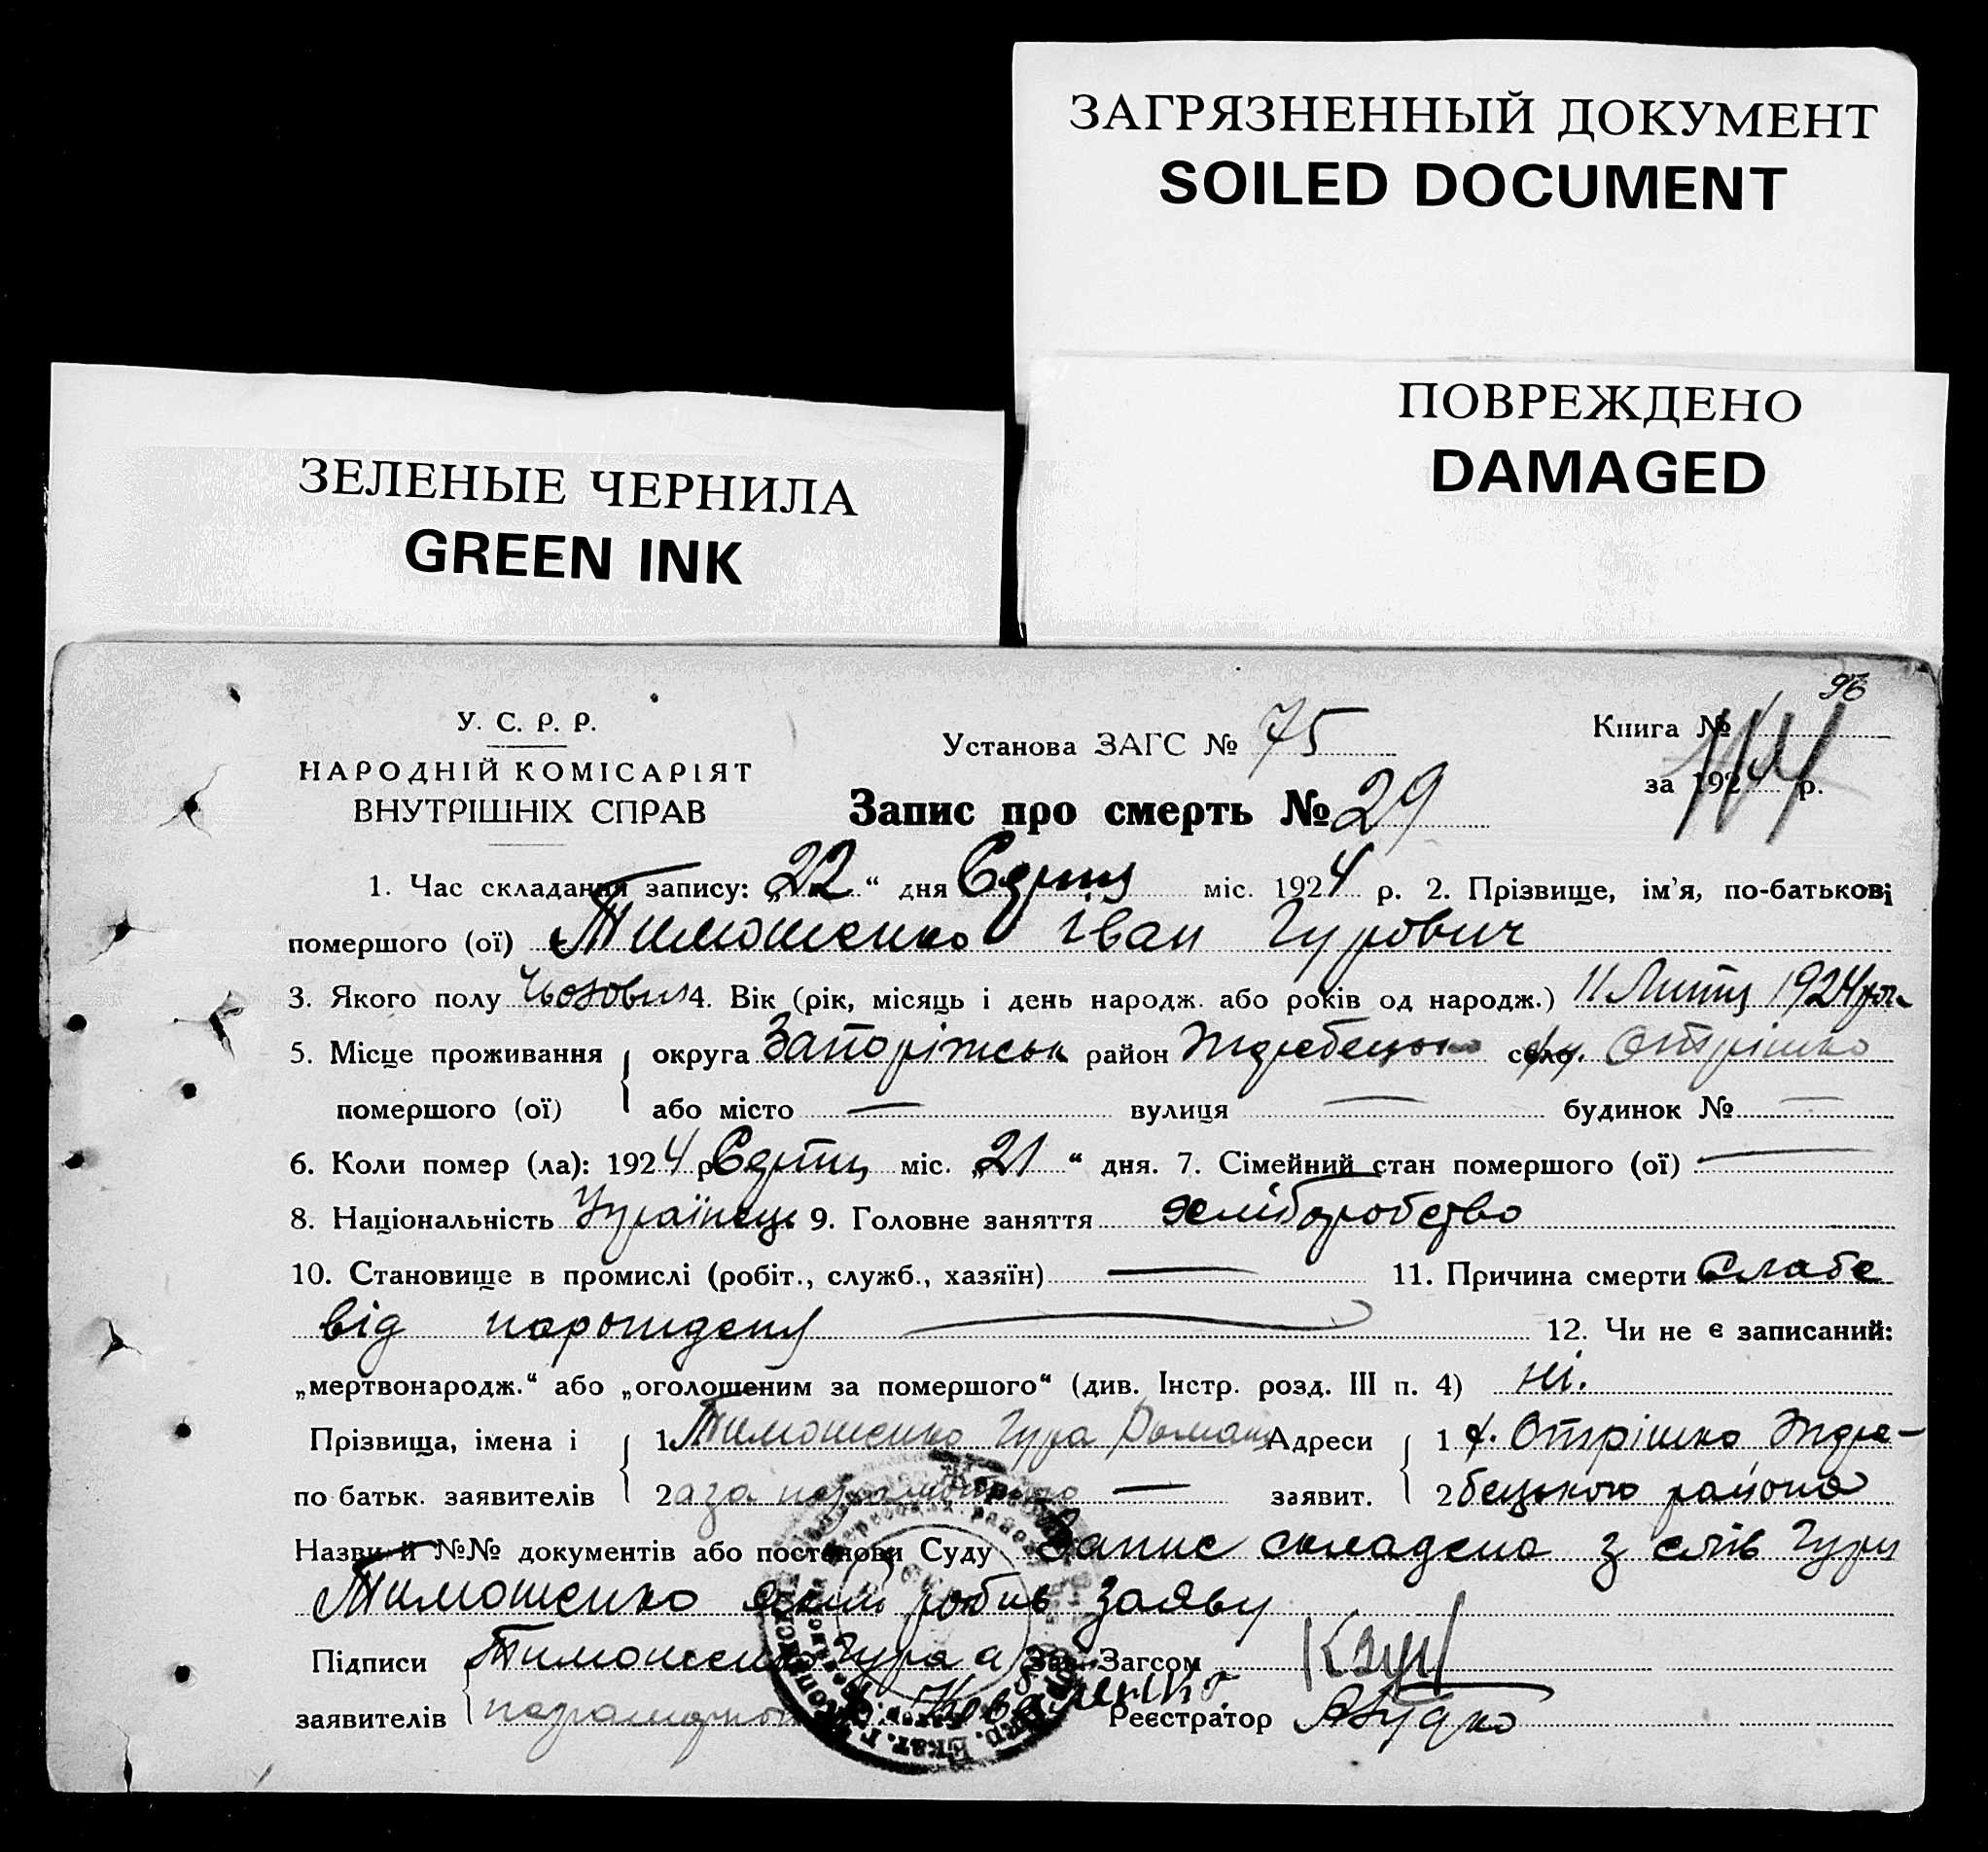 ЗАГРЯЗНЕННЫЙ ДОКУМЕНТ
SOILED DOCUMENT
ПОВРЕЖДЕНО
DAMAGED
ЗЕЛЕНЫЕ ЧЕРНИЛА
GREEN INK
96
У. С. Р. Р.
НАРОДНІЙ КОМІСАРІЯТ
ВНУТРІШНІХ СПРАВ
Установа ЗАГС № 75
Книга №
за 1924 р.
Запис про смерть № 29
1. Час складання запису: „22“ дня міс. 1924 р. 2. Прізвище, ім'я, по-батькові
помершого (ої) Тимошенко Іван Гурович
3. Якого полу 4. Вік (рік, місяць і день народж. або років од народж.) 11 1924
5. Місце проживання округа Запоріжськ район село Отрішко
помершого (ої) або місто — вулиця — будинок № —
6. Коли помер (ла): 1924 р. міс. „21“ дня. 7. Сімейний стан помершого (ої) —
8. Національність Українець 9. Головне заняття хліборобство
10. Становище в промислі (робіт., служб., хазяїн) — 11. Причина смерти слабе
від —— 12. Чи не є записаний:
„мертвонародж.“ або „оголошеним за помершого“ (див. Інстр. розд. III п. 4) ні.
Прізвища, імена і 1. Тимошенко Гура Адреси 1 х. Отрішко Ждре-
по батьк. заявителів 2 а за — заявит. 2 бецького района
Назви й №№ документів або постанови Суду Запис складено з слів Гури
Тимошенко який робив заяву
Підписи Тимошенко Гура а Зав. Загсом
заявителів Коваленко. Реєстратор